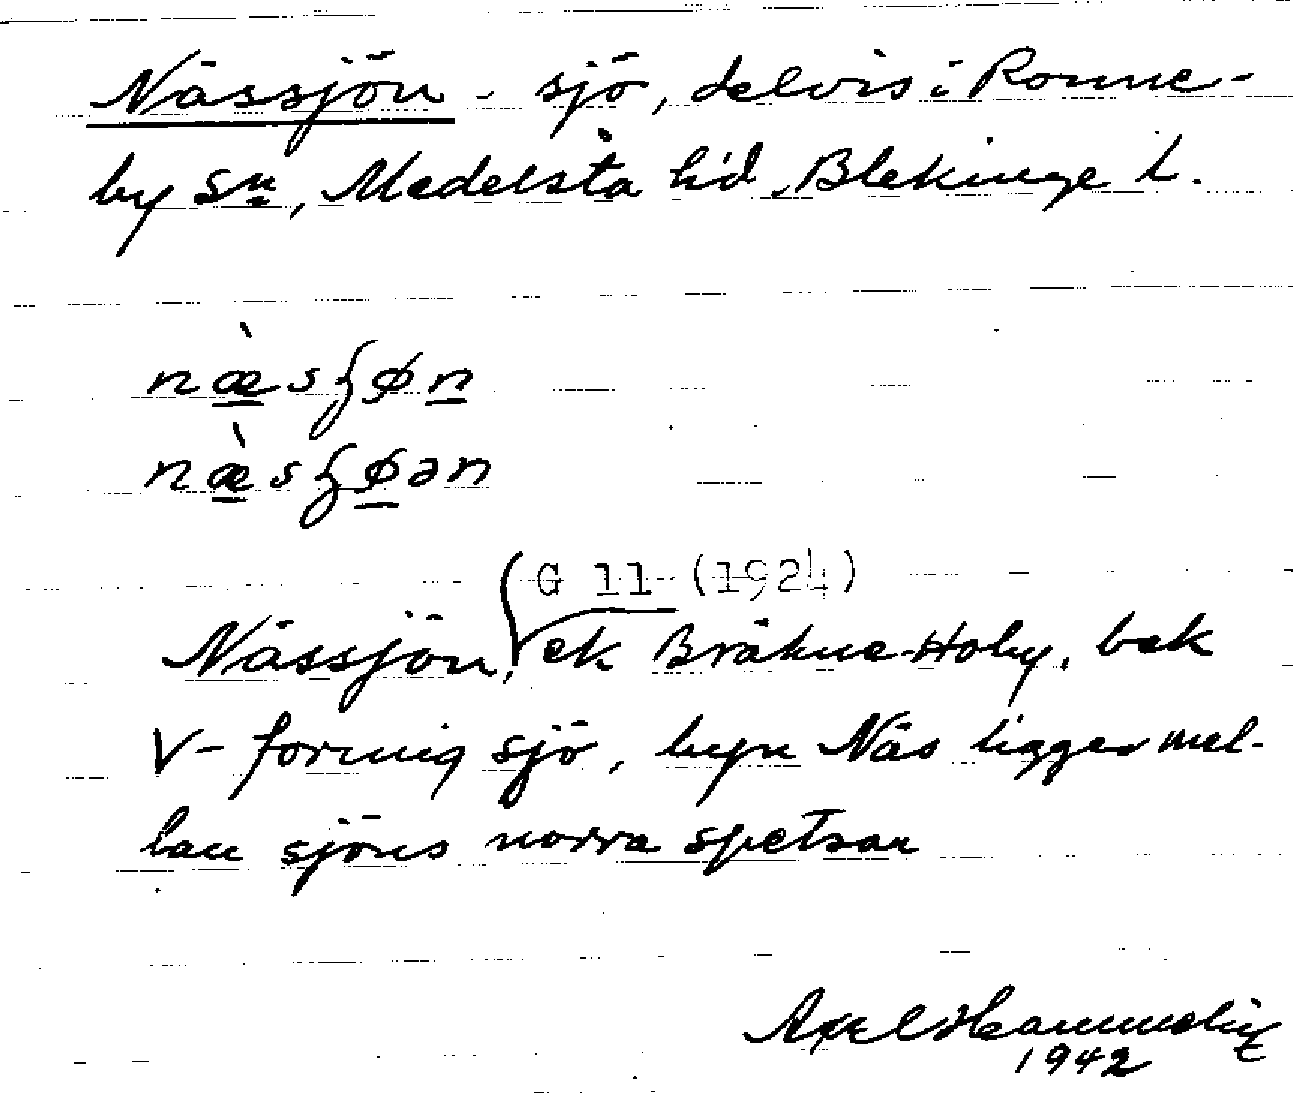 Nässjön - sjö, delvis i Ronne-
by sn, Medelsta hd, Blekinge l.
næ̀sʃøn
næ̀sʃøən
G 11 (1924)
Nässjön, ek Bräkne-Hoby, bek
V-formig sjö, byn Näs ligger mel-
lan sjöns norra spetsar
Axel
1942